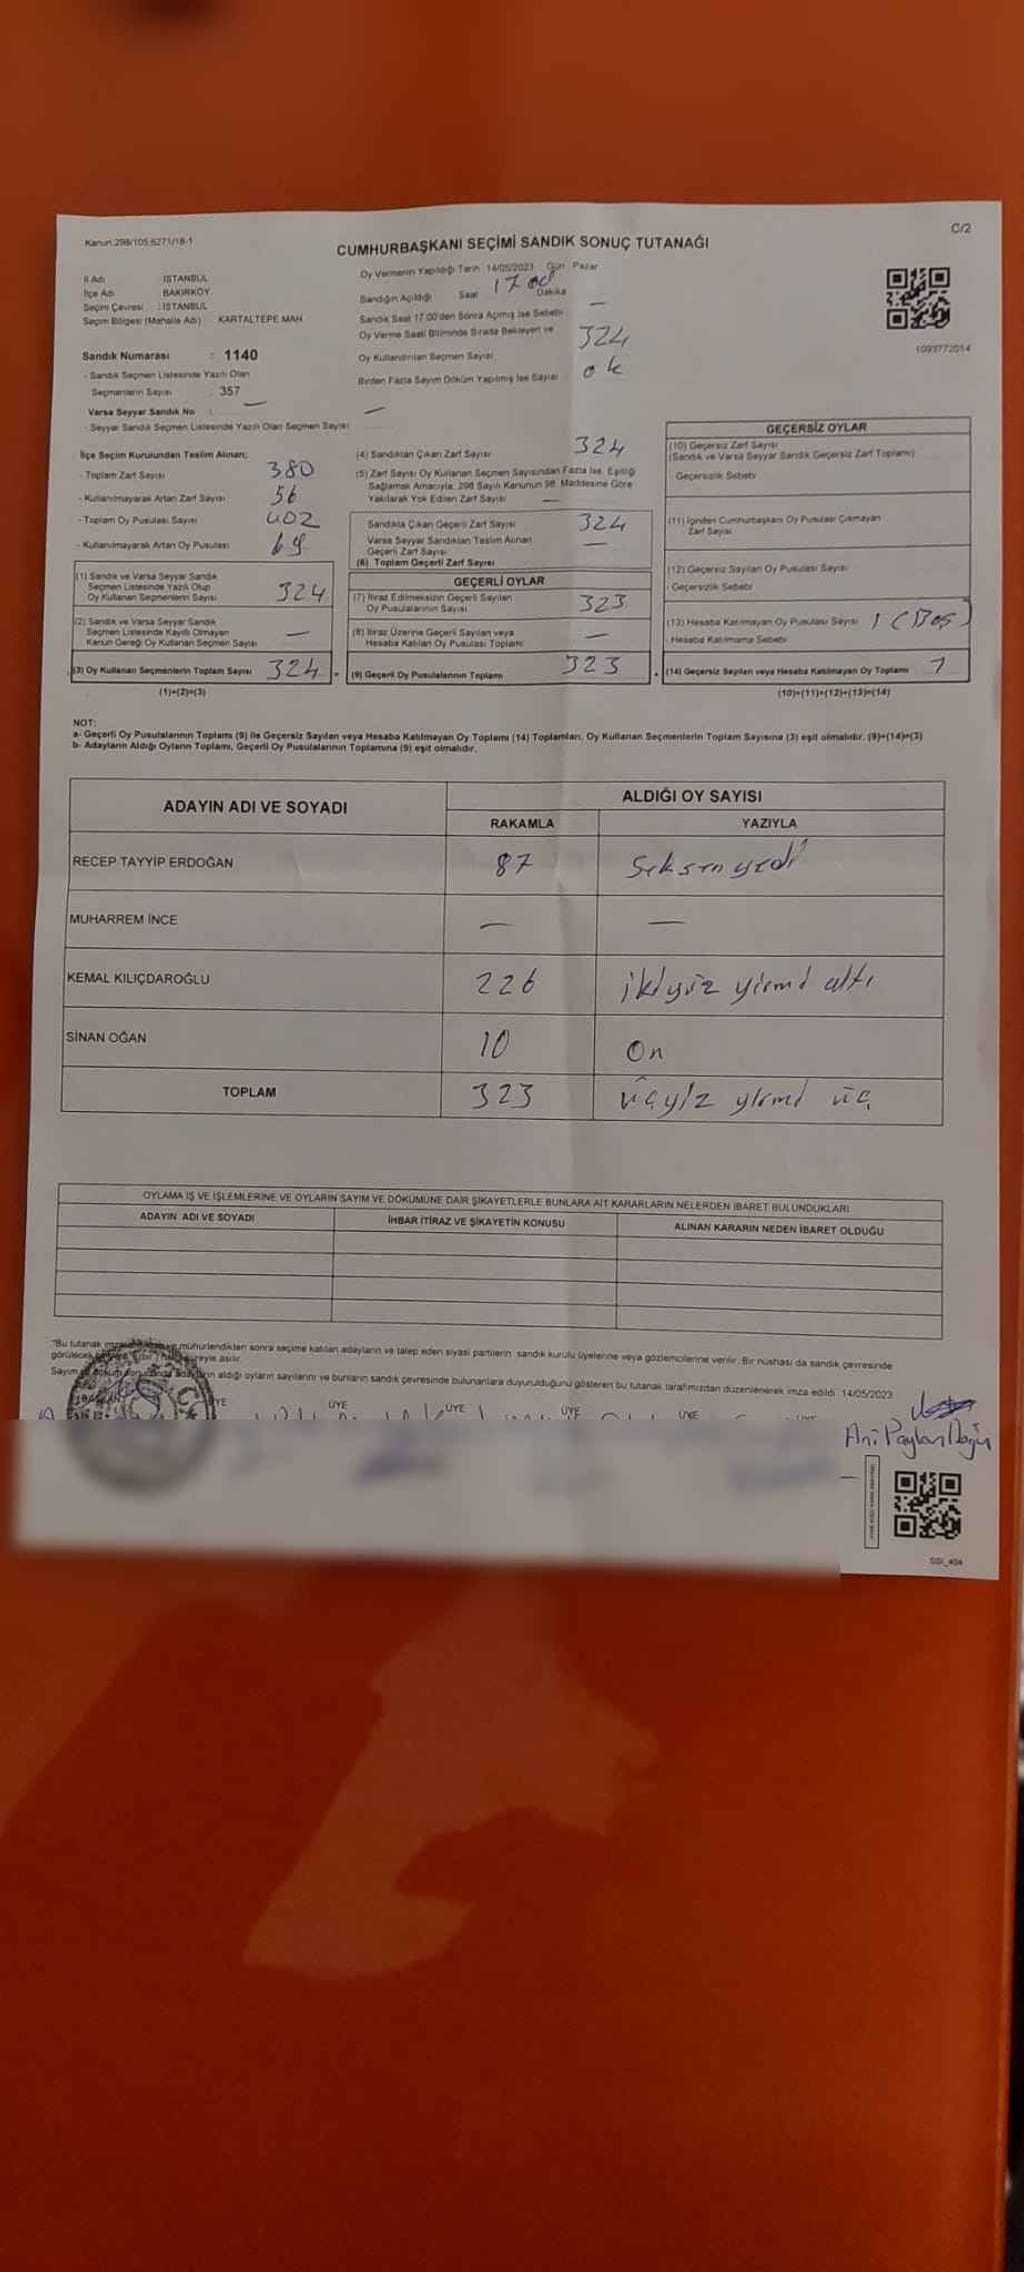 Kanun:298/105,6271/18-1
C/2
CUMHURBAŞKANI SEÇİMİ SANDIK SONUÇ TUTANAĞI
İl Adı : İSTANBUL
İlçe Adı : BAKIRKÖY
Seçim Çevresi : İSTANBUL
Seçim Bölgesi (Mahalle Adı) : KARTALTEPE MAH.
Sandık Numarası : 1140
- Sandık Seçmen Listesinde Yazılı Olan
Seçmenlerin Sayısı : 357
Varsa Seyyar Sandık No : —
- Seyyar Sandık Seçmen Listesinde Yazılı Olan Seçmen Sayısı : —
Oy Vermenin Yapıldığı Tarih : 14/05/2023 Gün : Pazar
Sandığın Açıldığı Saat 17 00 Dakika
Sandık Saat 17.00'den Sonra Açılmış İse Sebebi —
Oy Verme Saati Bitiminde Sırada Bekleyen ve
Oy Kullandırılan Seçmen Sayısı 324
Birden Fazla Sayım Döküm Yapılmış İse Sayısı ok
1093772014
İlçe Seçim Kurulundan Teslim Alınan;
- Toplam Zarf Sayısı 380
- Kullanılmayarak Artan Zarf Sayısı 56
- Toplam Oy Pusulası Sayısı 402
- Kullanılmayarak Artan Oy Pusulası
(1) Sandık ve Varsa Seyyar Sandık
Seçmen Listesinde Yazılı Olup
Oy Kullanan Seçmenlerin Sayısı 324
(2) Sandık ve Varsa Seyyar Sandık
Seçmen Listesinde Kayıtlı Olmayan
Kanun Gereği Oy Kullanan Seçmen Sayısı —
(3) Oy Kullanan Seçmenlerin Toplam Sayısı 324 =
(1)+(2)=(3)
(4) Sandıktan Çıkan Zarf Sayısı 324
(5) Zarf Sayısı Oy Kullanan Seçmen Sayısından Fazla İse, Eşitliği
Sağlamak Amacıyla, 298 Sayılı Kanunun 98. Maddesine Göre
Yakılarak Yok Edilen Zarf Sayısı —
Sandıkta Çıkan Geçerli Zarf Sayısı 324
Varsa Seyyar Sandıktan Teslim Alınan
Geçerli Zarf Sayısı —
(6) Toplam Geçerli Zarf Sayısı
GEÇERLİ OYLAR
(7) İtiraz Edilmeksizin Geçerli Sayılan
Oy Pusulalarının Sayısı 323
(8) İtiraz Üzerine Geçerli Sayılan veya
Hesaba Katılan Oy Pusulası Toplamı —
(9) Geçerli Oy Pusulalarının Toplamı 323 +
GEÇERSİZ OYLAR
(10) Geçersiz Zarf Sayısı
(Sandık ve Varsa Seyyar Sandık Geçersiz Zarf Toplamı)
Geçersizlik Sebebi
(11) İçinden Cumhurbaşkanı Oy Pusulası Çıkmayan
Zarf Sayısı
(12) Geçersiz Sayılan Oy Pusulası Sayısı
- Geçersizlik Sebebi
(13) Hesaba Katılmayan Oy Pusulası Sayısı 1 (Boş)
- Hesaba Katılmama Sebebi
(14) Geçersiz Sayılan veya Hesaba Katılmayan Oy Toplamı 1
(10)+(11)+(12)+(13)=(14)
NOT:
a- Geçerli Oy Pusulalarının Toplamı (9) ile Geçersiz Sayılan veya Hesaba Katılmayan Oy Toplamı (14) Toplamları, Oy Kullanan Seçmenlerin Toplam Sayısına (3) eşit olmalıdır. (9)+(14)=(3)
b- Adayların Aldığı Oyların Toplamı, Geçerli Oy Pusulalarının Toplamına (9) eşit olmalıdır.
ADAYIN ADI VE SOYADI
ALDIĞI OY SAYISI
RAKAMLA YAZIYLA
RECEP TAYYİP ERDOĞAN 87 seksen yedi
MUHARREM İNCE — —
KEMAL KILIÇDAROĞLU 226 ikiyüz yirmi altı
SİNAN OĞAN 10 On
TOPLAM 323 üçyüz yirmi üç
OYLAMA İŞ VE İŞLEMLERİNE VE OYLARIN SAYIM VE DÖKÜMÜNE DAİR ŞİKAYETLERLE BUNLARA AİT KARARLARIN NELERDEN İBARET BULUNDUKLARI
ADAYIN ADI VE SOYADI İHBAR İTİRAZ VE ŞİKAYETİN KONUSU ALINAN KARARIN NEDEN İBARET OLDUĞU
"Bu tutanak mühürlendikten sonra seçime katılan adayların ve talep eden siyasi partilerin sandık kurulu üyelerine veya gözlemcilerine verilir. Bir nüshası da sandık çevresinde
görülecek süreyle asılır.
Sayım aldığı oyların sayılarını ve bunların sandık çevresinde bulunanlara duyurulduğunu gösteren bu tutanak tarafımızdan düzenlenerek imza edildi. 14/05/2023
ÜYE ÜYE ÜYE ÜYE
SSI_404